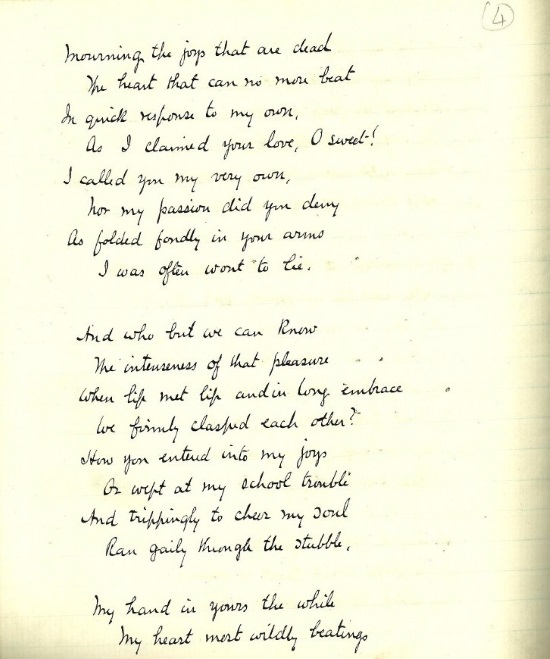 4
Mourning the joys that are dead
The heart that can no more beat
In quick response to my own,
As I claimed your love, O sweet!
I called you my very own,
Nor my passion did you deny
As folded fondly in your arms
I was often wont to lie.
And who but we can know
The intenseness of that pleasure
When lip met lip and in long embrace
We firmly clasped each other?
How you entered into my joys
Or wept at my school trouble
And trippingly to cheer my soul
Ran gaily through the stubble,
My hand in yours the while
My heart most wildly beating